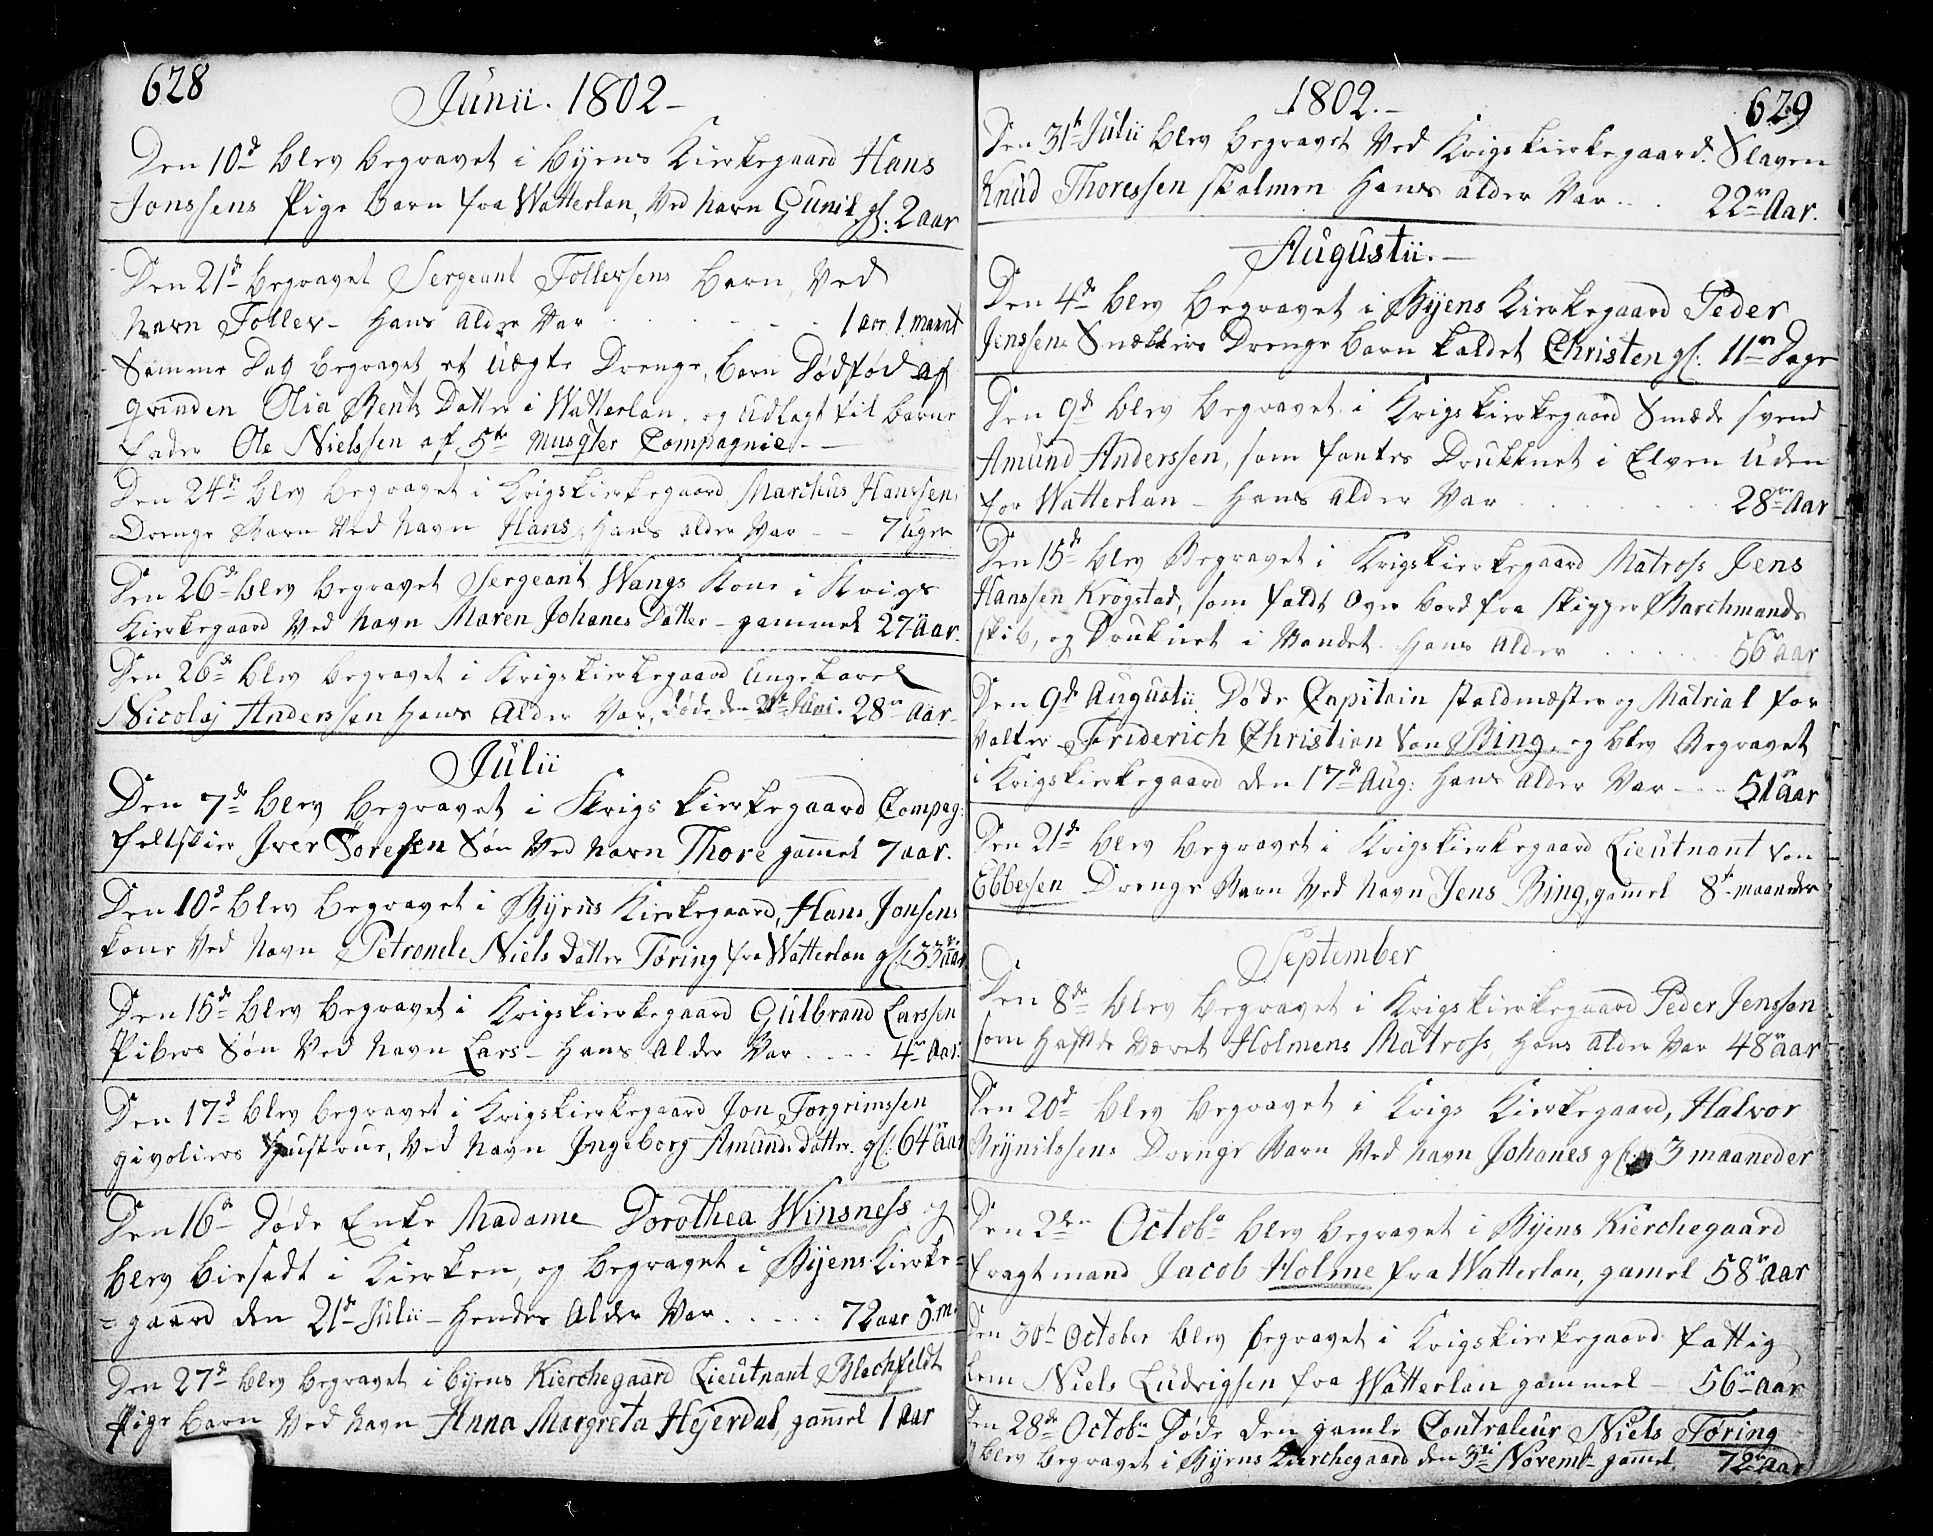 628
Junii. 1802 -
Den 10d blev begravet i Byens Kierkegaard Hans
Jonssens Pige barn fra Watterlan, Ved Navn Gunil gl: 2 aar
Den 21d begravet Sergeant Tollevsens barn, Ved
Navn Tollev - Hans alder Var - - - 1 aar 1 maant
Samme Dag begravet et uægte Drenge, barn Dødfød af
qvinden Olia Bents Datter i Watterlan. og udlagt til barne
fader Ole Nielssen af 5te Musqter Compagnie. -
Den 24de blev begravet i Krigskierkegaard Marchus Hanssens
Drenge Barn Ved Navn Hans, Hans alder Var - - 7 uger
Den 26d blev begravet Sergeant Wangs Kone i Krigs
Kierkegaard Ved Navn Maren Johanes Datter - gammel 27 aar.
Den 26de blev begravet i Krigskierkegaard ungekarel
Nicolaj Anderssen Hans Alder Var, døde den 21de Juni. 28 aar -
Julii
Den 7de blev begravet i Krigs kierkegaard Compag:
feltskier Iver Sørensen Søn Ved Navn Thore gamel 7 aar.
Den 10d blev begravet i Byens Kierkegaard, Hans Jonsens
kone Ved Navn Petronele Niels datter Tøring fra Watterlan gl: 33 aar
Den 15de blev begravet i Krigskierkegaard Gulbrand Larssen
Pibers Søn Ved Navn Lars - Hans Alder Var . . . . 4 aar.
Den 17d blev begravet i Krigskierkegaard Jon Torgrimssen
givoliers Hustrue, Ved Navn Ingeborg Amunds datter. gl: 64 aar
Den 16de Døde Enke Madame Dorothea Winsness og
blev birsadt i Kierken, og begravet i Byens Kierke=
=gaard den 21de Julii - Hendes Alder Var . . . . . 72 aar 5. m.
Den 27d blev begravet i byens Kierchegaard Lieutnant Blechfeldt
Pige barn Ved Navn Anna Margreta Hejerdal, gamel 1 aar
1802. -
629
Den 31te Julii blev begravet Ved Krigskierkegaard. Slaven
Knud Thoressen skalmen Hans alder Var - . . 22 Aar.
Augustii. -
Den 4de blev begravet i Byens Kierkegaard Peder
Jenssens Snækkers Drenge barn kaldet Christen gl: 11 Dage
Den 9d blev begravet i Krigskierkegaard Smæde svend
Amund Anderssen, som fantes Drukknet i Elven uden
for Watterlan - Hans alder Var . . . . . . . 28 Aar
Den 15de blev Begravet i Krigskierkegaard Matross Jens
Hanssen Krogstad, som faldt over bord fra skipper Barchmands
skib, og Druknet i Vandet. Hans Alder . . . . . . 56 aar
Den 9d Augustii Døde Capitain staldmæster og Matrial for
valter Friderich Christian Von Bing, og blev Begravet
i Krigskierkegaard den 17de Aug: Hans alder Var - - - 51 aar
Den 21de blev begravet i Krigskierkegaard Lieutnant Von
Ebbesen Drenge Barn Ved Navn Jens Bing, gamel 8 maaneder
September
Den 8de blev begravet i Krigskierkegaard Peder Jenssen
som Hafde Været Holmens Matross, Hans alder Var 48 aar
Den 20d blev begravet i Krigs Kierkegaard, Halvor
Brynilssens Drenge Barn Ved Navn Johanes gl: 3 maaneder
Den 2den Octobr blev begravet i Byens Kierchegaard
fragtmand Jacob Holme fra Watterlan, gamel 58 aar
Den 30te October blev begravet i Krigskierkegaard fattig
Lem Niels Ludvigsen fra Watterlan gammel - 56 aar
Den 28de Octobr Døde den gamle Contraleur Niels Tøring
blev begravet i Byens Kierchegaard den 3die Novemb gamel. 72 aar